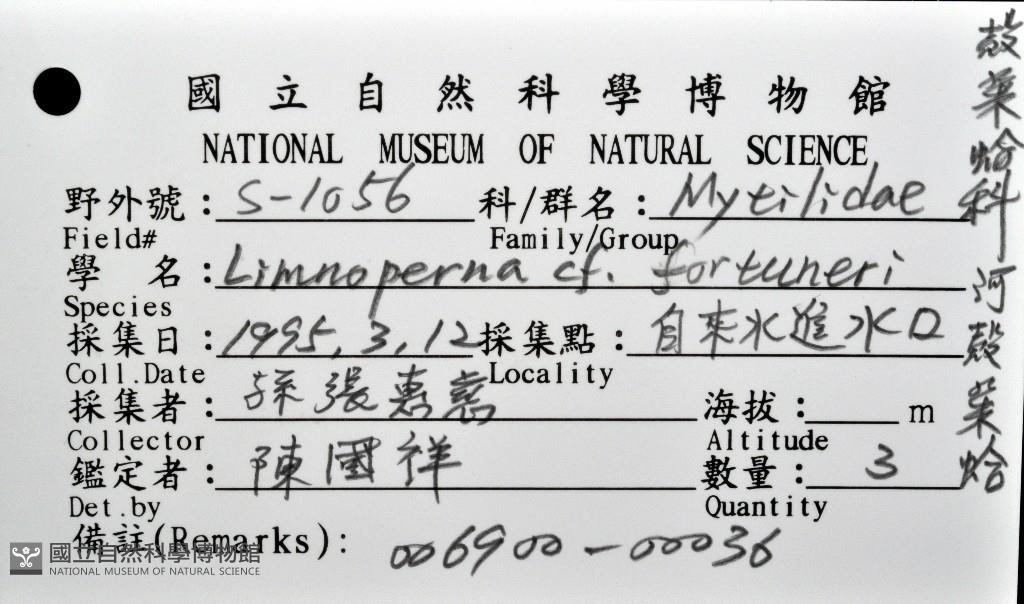 國立自然科學博物館
NATIONAL MUSEUM OF NATURAL SCIENCE
野外號：S-1056 科/群名：Mytilidae
Field# Family/Group
學 名：Limnoperna cf. fortuneri
Species
採集日：1995, 3, 12 採集點：自來水進水口
Coll.Date Locality
採集者：孫張惠慈 海拔： m
Collector Altitude
鑑定者：陳國祥 數量：3
Det.by Quantity
備註(Remarks)： 006900-00036
殼菜蛤科 河殼菜蛤
國立自然科學博物館
NATIONAL MUSEUM OF NATURAL SCIENCE